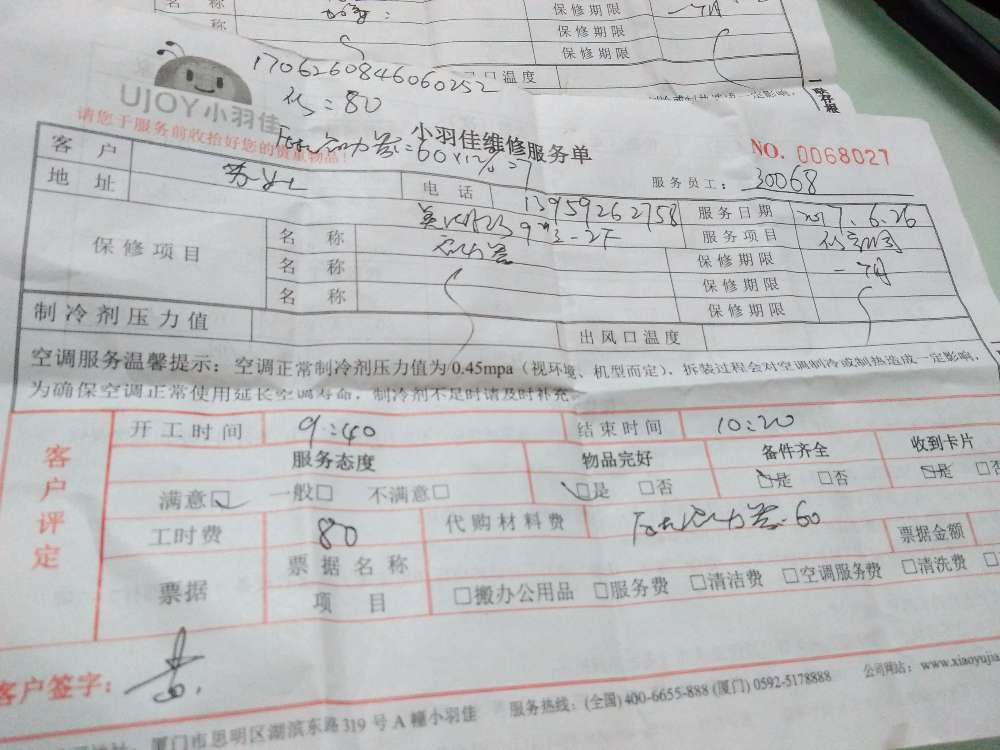 保修期限
保修期限
保修期限
温度
1706260846060252
UJOY小羽佳
=80
请您于服务前收拾好您的贵重物品!
=60×12%=7
小羽佳维修服务单
NO. 0068027
服务员工: 30068
客户
电话 13959262758 服务日期 2017.6.26
地址
服务项目
保修项目 名称 保修期限 一个月
名称 保修期限
名称 保修期限
制冷剂压力值 出风口温度
空调服务温馨提示: 空调正常制冷剂压力值为0.45mpa (视环境、机型而定), 拆装过程会对空调制冷或制热造成一定影响,
为确保空调正常使用延长空调寿命, 制冷剂不足时请及时补充。
客户评定
开工时间 9:40 结束时间 10:20
服务态度 物品完好 备件齐全 收到卡片
满意□ 一般□ 不满意□ □是 □否 □是 □否 □是 □否
工时费 80 代购材料费 60 票据金额
票据 票据名称
项目 □搬办公用品 □服务费 □清洁费 □空调服务费 □清洗费
客户签字:
厦门市思明区湖滨东路319号A幢小羽佳 服务热线: (全国) 400-6655-888 (厦门) 0592-5178888 公司网站: www.xiaoyujia